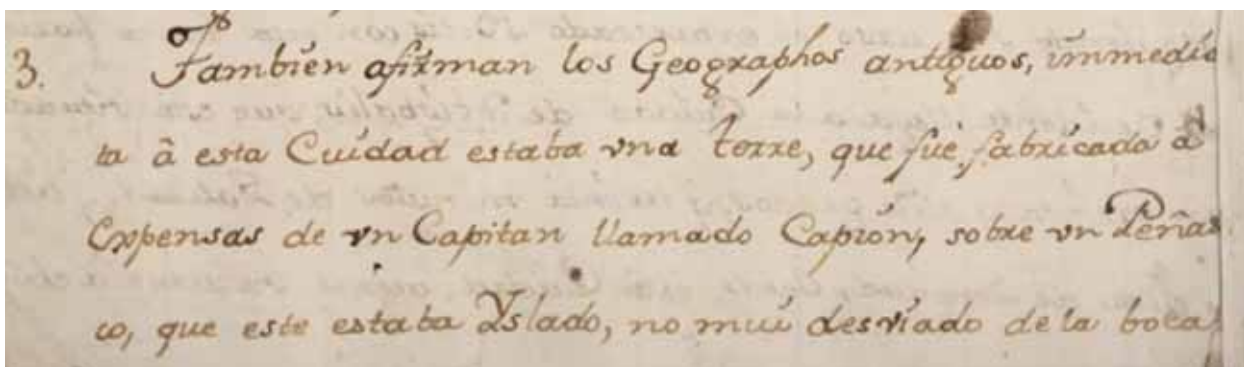 3. Tambien afirman los Geographos antiguos, immedia
ta â esta Cuidad estaba vna torre, que fuè fabricada à
Expensas de vn Capitan llamado Capion, sobre vn Peñas
co, que este estaba Yslado, no mui desviado de la boca